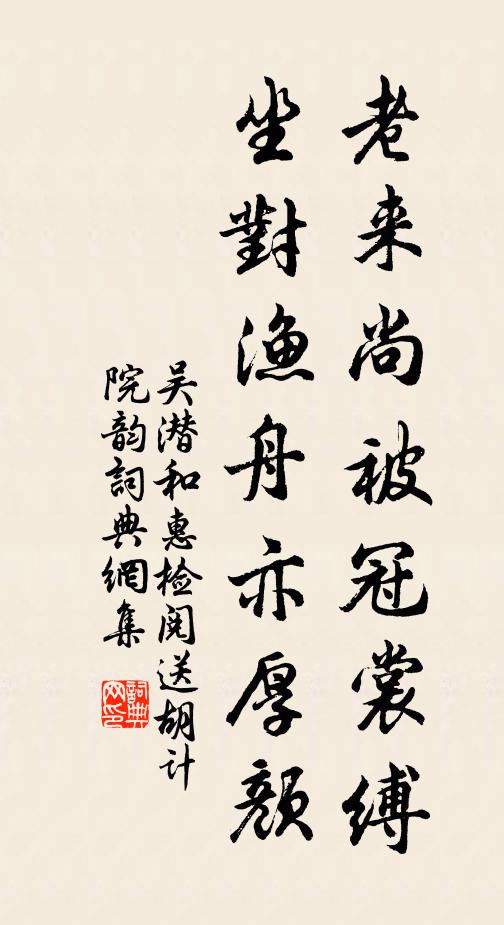 老来尚被冠裳缚
坐對漁舟亦厚顏
吴潜和惠检阅送胡计
院韵詞典網集
詞典网印